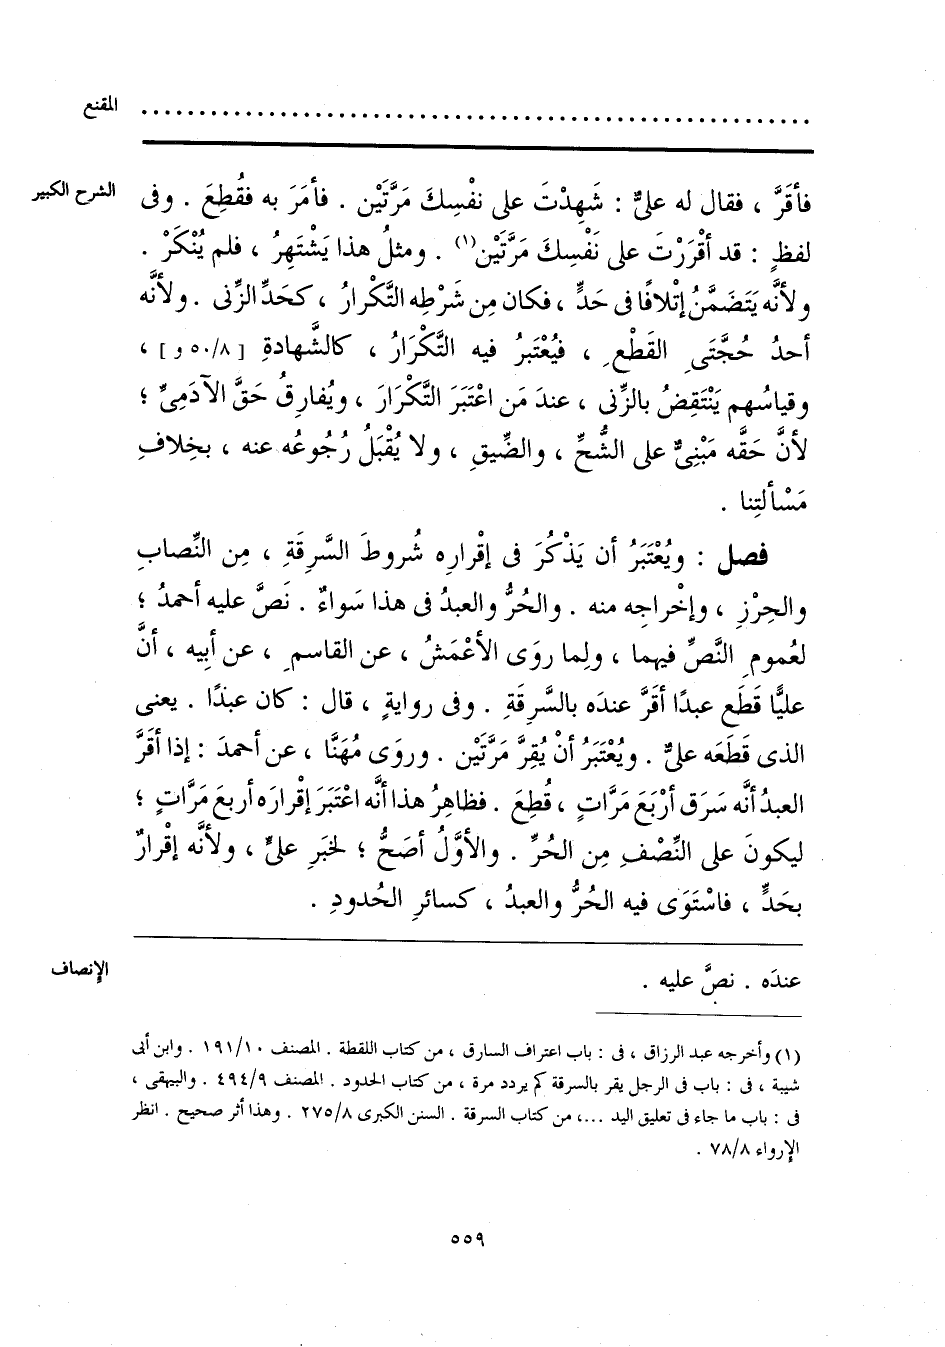 المقنع ................................................................
الشرح الكبير فأقَرَّ ، فقال له علىٌّ : شَهِدْتَ على نفْسِكَ مَرَّتَيْن . فأمَرَ به فقُطِعَ . وفى
لفظٍ : قد أقْرَرْتَ على نَفْسِكَ مَرَّتَيْن(١) . ومثلُ هذا يَشْتَهِرُ ، فلم يُنْكَرْ .
ولأنَّه يَتَضَمَّنُ إتْلافًا فى حَدٍّ ، فكان مِن شَرْطِه التَّكْرارُ ، كحَدِّ الزِّنى . ولأنَّه
أحدُ حُجَّتَىِ القَطْعِ ، فيُعْتَبرُ فيه التَّكْرَارُ ، كالشَّهادةِ [ ٨/٥٠و ] ،
وقياسُهم يَنْتَقِضُ بالزِّنى ، عندَ مَن اعْتَبَرَ التَّكْرَارَ ، ويُفارِقُ حَقَّ الآدَمِىِّ ؛
لأنَّ حَقَّه مَبْنِىٌّ على الشُّحِّ ، والضِّيقِ ، ولا يُقْبَلُ رُجُوعُه عنه ، بخِلافِ
مَسْألتِنا .
فصل : ويُعْتَبَرُ أن يَذْكُرَ فى إقْرارِه شُروطَ السَّرِقَةِ ، مِن النِّصابِ
والحِرْزِ ، وإخْراجِه منه . والحُرُّ والعبدُ فى هذا سَواءٌ . نَصَّ عليه أحمدُ ؛
لعُمومِ النَّصِّ فيهما ، ولِما روَى الأعْمَشُ ، عن القاسمِ ، عن أبِيه ، أنَّ
عليًّا قَطَع عبدًا أقَرَّ عندَه بالسَّرِقَةِ . وفى روايةٍ ، قال : كان عبْدًا . يعنى
الذى قَطَعَه علىٌّ . ويُعْتَبَرُ أنْ يُقِرَّ مَرَّتَيْن . وروَى مُهَنَّا ، عن أحمدَ : إذا أقَرَّ
العبدُ أنَّه سَرَق أرْبَعَ مَرَّاتٍ ، قُطِعَ . فظاهِرُ هذا أنَّه اعْتَبَرَ إقْرارَه أربعَ مَرَّاتٍ ؛
ليكونَ على النِّصْفِ مِن الحُرِّ . والأوَّلُ أصَحُّ ؛ لخَبَرِ علىٍّ ، ولأنَّه إقْرارٌ
بحَدٍّ ، فاسْتَوَى فيه الحُرُّ والعبدُ ، كسائرِ الحُدودِ .
الإنصاف عندَه . نصَّ عليه .
(١) وأخرجه عبد الرزاق ، فى : باب اعتراف السارق ، من كتاب اللقطة . المصنف ١٩١/١٠ . وابن أبى
شيبة ، فى : باب فى الرجل يقر بالسرقة كم يردد مرة ، من كتاب الحدود . المصنف ٤٩٤/٩ . والبيهقى ،
فى : باب ما جاء فى تعليق اليد ...، من كتاب السرقة . السنن الكبرى ٢٧٥/٨ . وهذا أثر صحيح . انظر
الإرواء ٧٨/٨ .
٥٥٩